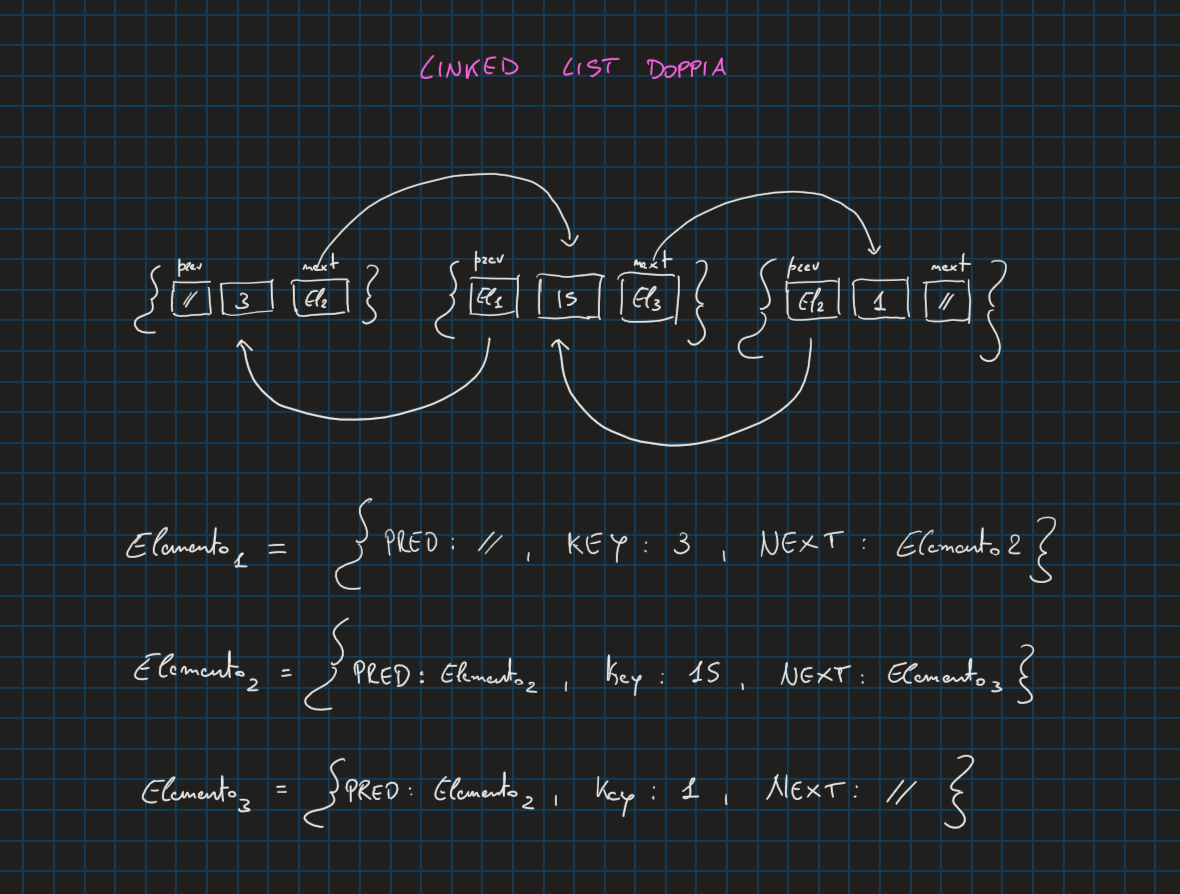 LINKED LIST DOPPIA
prev next prev next prev next
{ // 3 El2 } { El1 15 El3 } { El2 1 // }
Elemento1 = { PRED : // , KEY : 3 , NEXT : Elemento2 }
Elemento2 = { PRED : Elemento2 , Key : 15 , NEXT : Elemento3 }
Elemento3 = { PRED : Elemento2 , Key : 1 , NEXT : // }